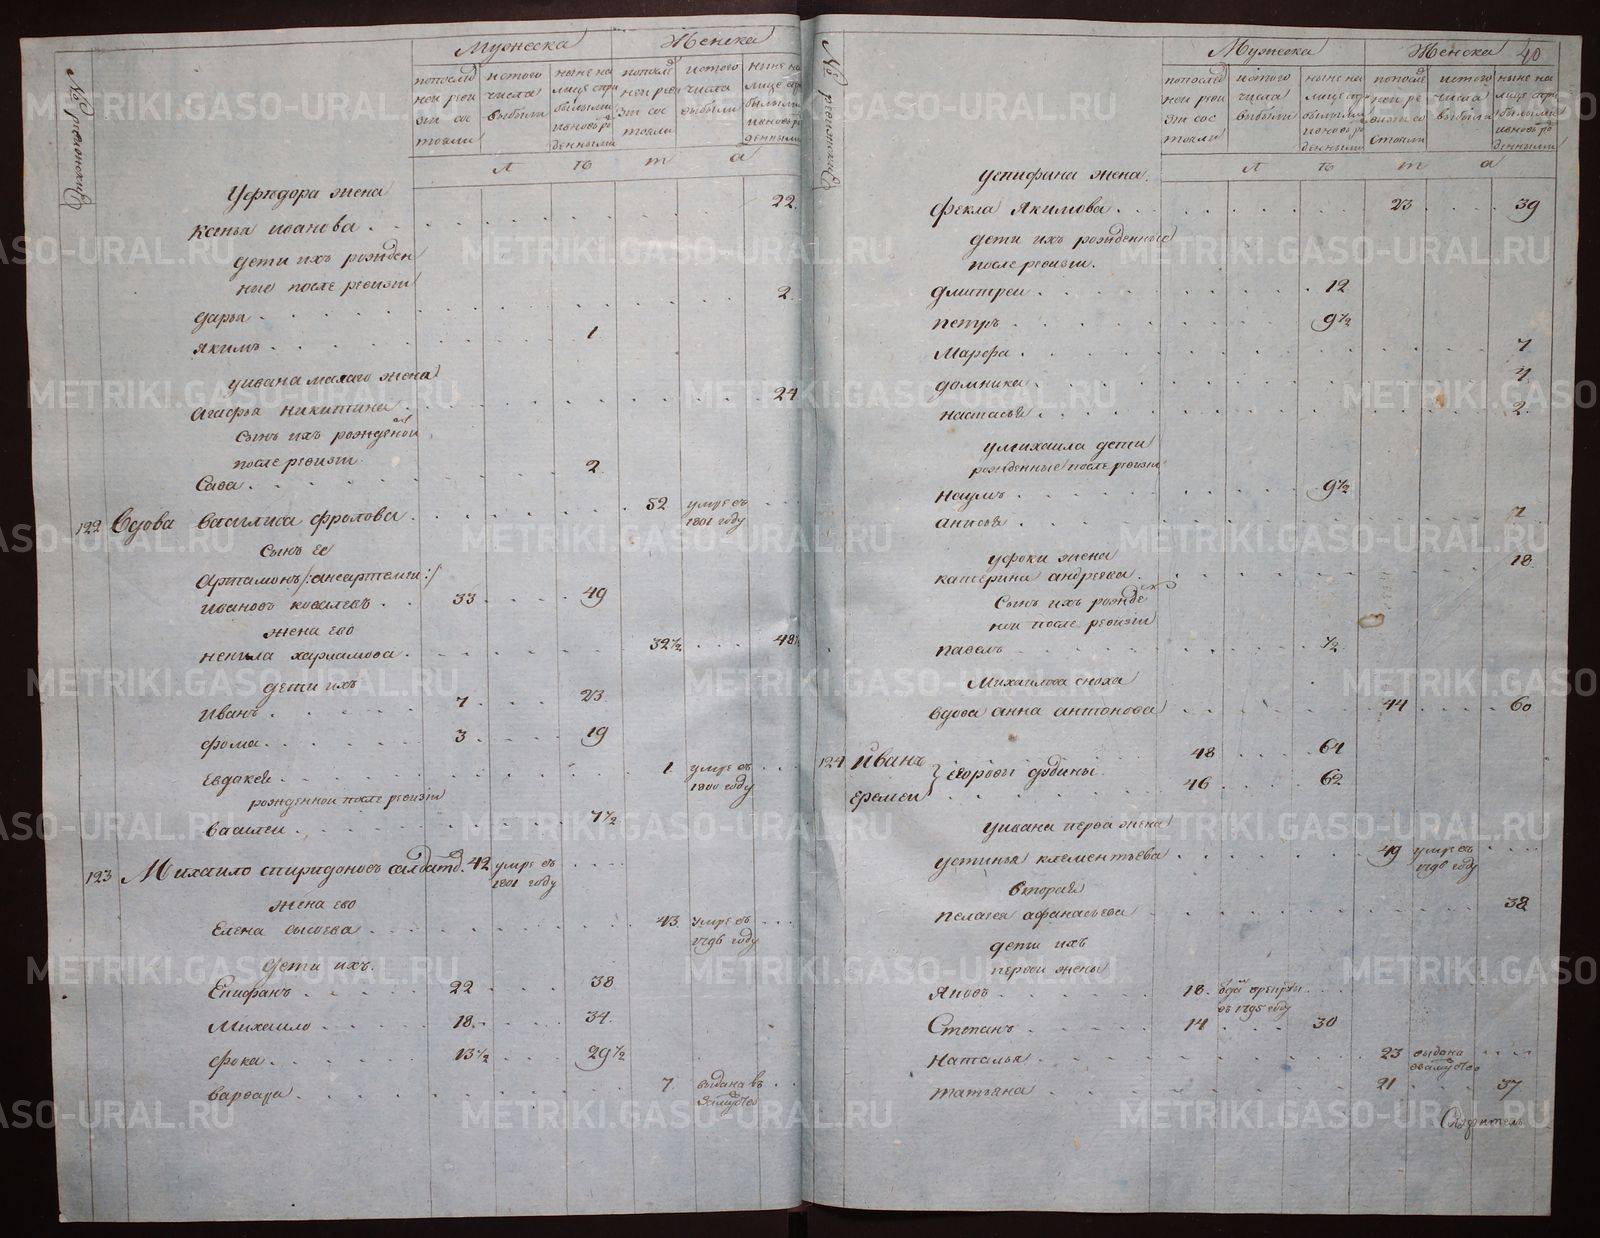 № ревизския
Мужеска Женска
попослед ней реви зии сос тояли
истого числа выбыли
ныне на лице спри былыми ивновь ро денными
попослед ней реви зии сос тояли
истого числа выбыли
ныне на лице спри былыми ивновь ро денными
л ѣ т а
Уфедора жена
Ксенья иванова 22
дети ихъ рожден
ные после ревизiи
дарья 2
якимъ 1
уивана малаго жена
агафья никитина 24
Сынъ ихъ рожденой
после ревизiи
Сава 2
122 Вдова василиса фролова 52 умре въ 1801 году
Сынъ ее
Артамонъ
ивановъ ковалевъ 33 49
жена ево
ненила харламова 32½ 48½
дети ихъ
Иванъ 7 23
фома 3 19
Евдакея 1 умре въ 1800 году
рожденнои после ревизiи
василеи 7½
123 Михаило спиридоновъ салдатъ 42 умре въ 1801 году
жена ево
Елена сысоева 43 умре въ 1796 году
дети ихъ.
Епифанъ 22 38
Михаило 18 34
фока 13½ 29½
варвара 7 выдана въ замужство
40
№ ревизския
Мужеска Женска
попослед ней реви зии сос тояли
истого числа выбыли
ныне на лице спри былыми ивновь ро денными
попосле ней ре визiи со стояли
истого числа выбыли
ныне на лице спри былыми ивновь ро денными
л ѣ т а
уепифана жена
фекла якимова 23 39
дети ихъ рожденные
после ревизiи.
дмитреи 12
петръ 9½
Марфа 7
домника 4
настасья 2
умихаила дети
рожденные после ревизiи
наумъ 9½
анисья 7
уфоки жена
катерина андреева 18
Сынъ ихъ рожде
нои после ревизiи
павелъ ½
Михаилова сноха
вдова анна антонова 44 60
124 Иванъ 48 64
еремеи } егоровы дубины 46 62
уивана перва жена
устинья клементьева 49 умре въ 1796 году
вторая
пелагея афанасьева 38
дети ихъ
первои жены
Яковъ 18 въ 1795 году
Степанъ 14 30
наталья 23 выдана взамужство
татьяна 21 37